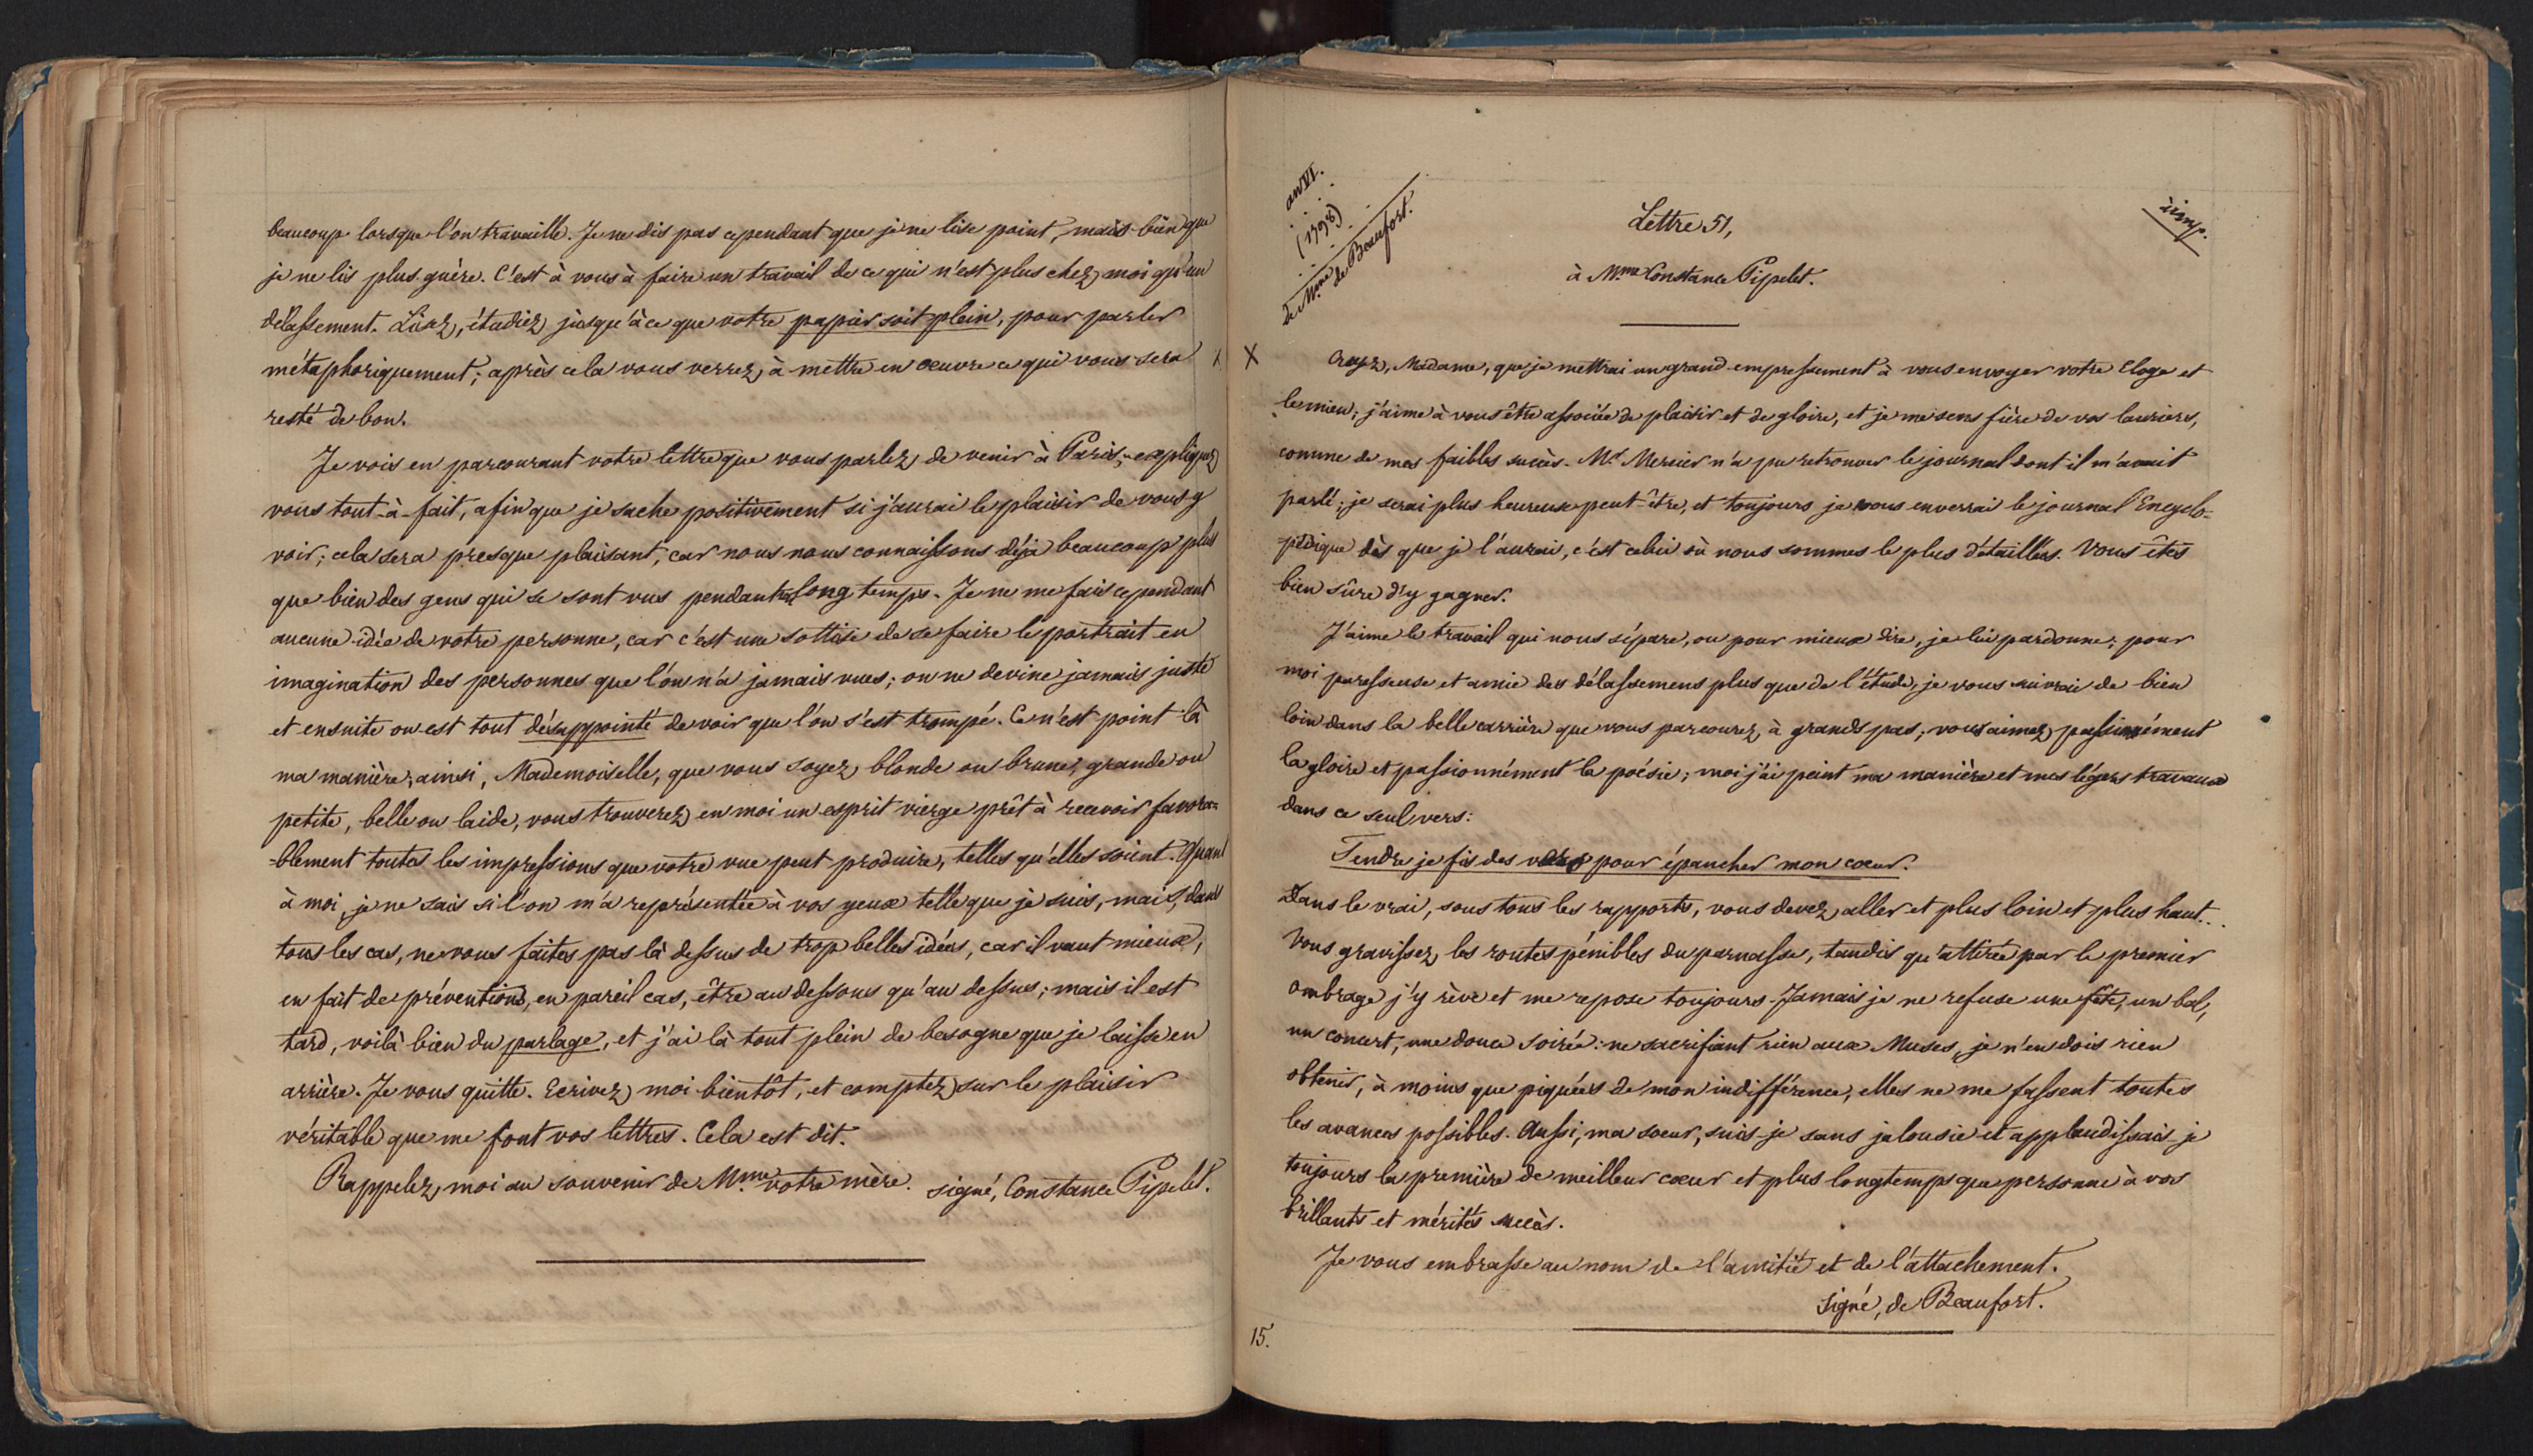 beaucoup lorsque l'on travaille. Je ne dis pas cependant que je ne lise point, mais bien que
je ne lis plus guère. C'est à vous à faire un travail de ce qui n'est plus chez moi qu'un
délassement. Lisez, étudiez jusqu'à ce que votre papier soit plein, pour parler
métaphoriquement; après cela vous verrez à mettre en œuvre ce qui vous sera
resté de bon.
Je vois en parcourant votre lettre que vous parlez de venir à Paris; expliquez
vous tout-à-fait, afin que je sache positivement si j'aurai le plaisir de vous y
voir; cela sera presque plaisant, car nous nous connaissons déjà beaucoup plus
que bien des gens qui se sont vus pendant long temps. Je ne me fais cependant
aucune idée de votre personne, car c'est une sottise de se faire le portrait en
imagination des personnes que l'on n'a jamais vues; on ne devine jamais juste
et ensuite on est tout désappointé de voir que l'on s'est trompé. Ce n'est point là
ma manière; ainsi, Mademoiselle, que vous soyez blonde ou brune, grande ou
petite, belle ou laide, vous trouverez en moi un esprit vierge prêt à recevoir favora=
-blement toutes les impressions que votre vue peut produire, telles qu'elles soient. Quant
à moi, je ne sais si l'on m'a représentée à vos yeux telle que je suis, mais, dans
tous les cas, ne vous faites pas là dessus de trop belles idées, car il vaut mieux,
en fait de préventions, en pareil cas, être au dessous qu'au dessus; mais il est
tard, voilà bien du parlage, et j'ai là tout plein de besogne que je laisse en
arrière. Je vous quitte. Ecrivez moi bientôt, et comptez sur le plaisir
véritable que me font vos lettres. Cela est dit.
Rappelez moi au souvenir de Mme votre mère. signé, Constance Pipelet.
an VI.
(1798)
de Mme de Beaufort.
Lettre 51,
imp.
à Mme Constance Pipelet.
X Croyez, Madame, que je mettrai un grand empressement à vous envoyer votre Eloge et
le mien; j'aime à vous être associée de plaisir et de gloire, et je me sens fière de vos lauriers,
comme de mes faibles succès. Mr Mercier n'a pu retrouver le journal dont il m'avait
parlé; je serai plus heureuse peut-être, et toujours je vous enverrai le journal Encyclo-
pédique dès que je l'aurai, c'est celui où nous sommes le plus détaillées. Vous êtes
bien sûre d'y gagner.
J'aime le travail qui nous sépare, ou pour mieux dire, je lui pardonne; pour
moi paresseuse et amie des délassemens plus que de l'étude, je vous suivrai de bien
loin dans la belle carrière que vous parcourez à grands pas; vous aimez passionnément
la gloire et passionnément la poésie; moi j'ai peint ma manière et mes légers travaux
dans ce seul vers:
Tendre je fis des vers pour épancher mon cœur.
Dans le vrai, sous tous les rapports, vous devez aller et plus loin et plus haut..
Vous gravissez les routes pénibles du parnasse, tandis qu'attirée par le premier
ombrage j'y rêve et me repose toujours. Jamais je ne refuse une fête, un bal,
un concert, une douce soirée: ne sacrifiant rien aux Muses, je n'en dois rien
obtenir, à moins que piquées de mon indifférence, elles ne me fassent toutes
les avances possibles. Aussi, ma soeur, suis-je sans jalousie et applaudissais-je
toujours la première de meilleur cœur et plus longtemps que personne à vos
brillants et mérités succès.
Je vous embrasse au nom de l'amitié et de l'attachement.
Signé, de Beaufort.
15.